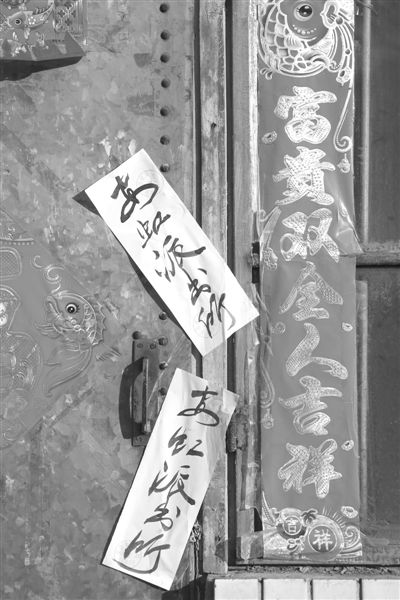 富贵双全人吉祥
安虹派出所
安虹派出所
吉祥